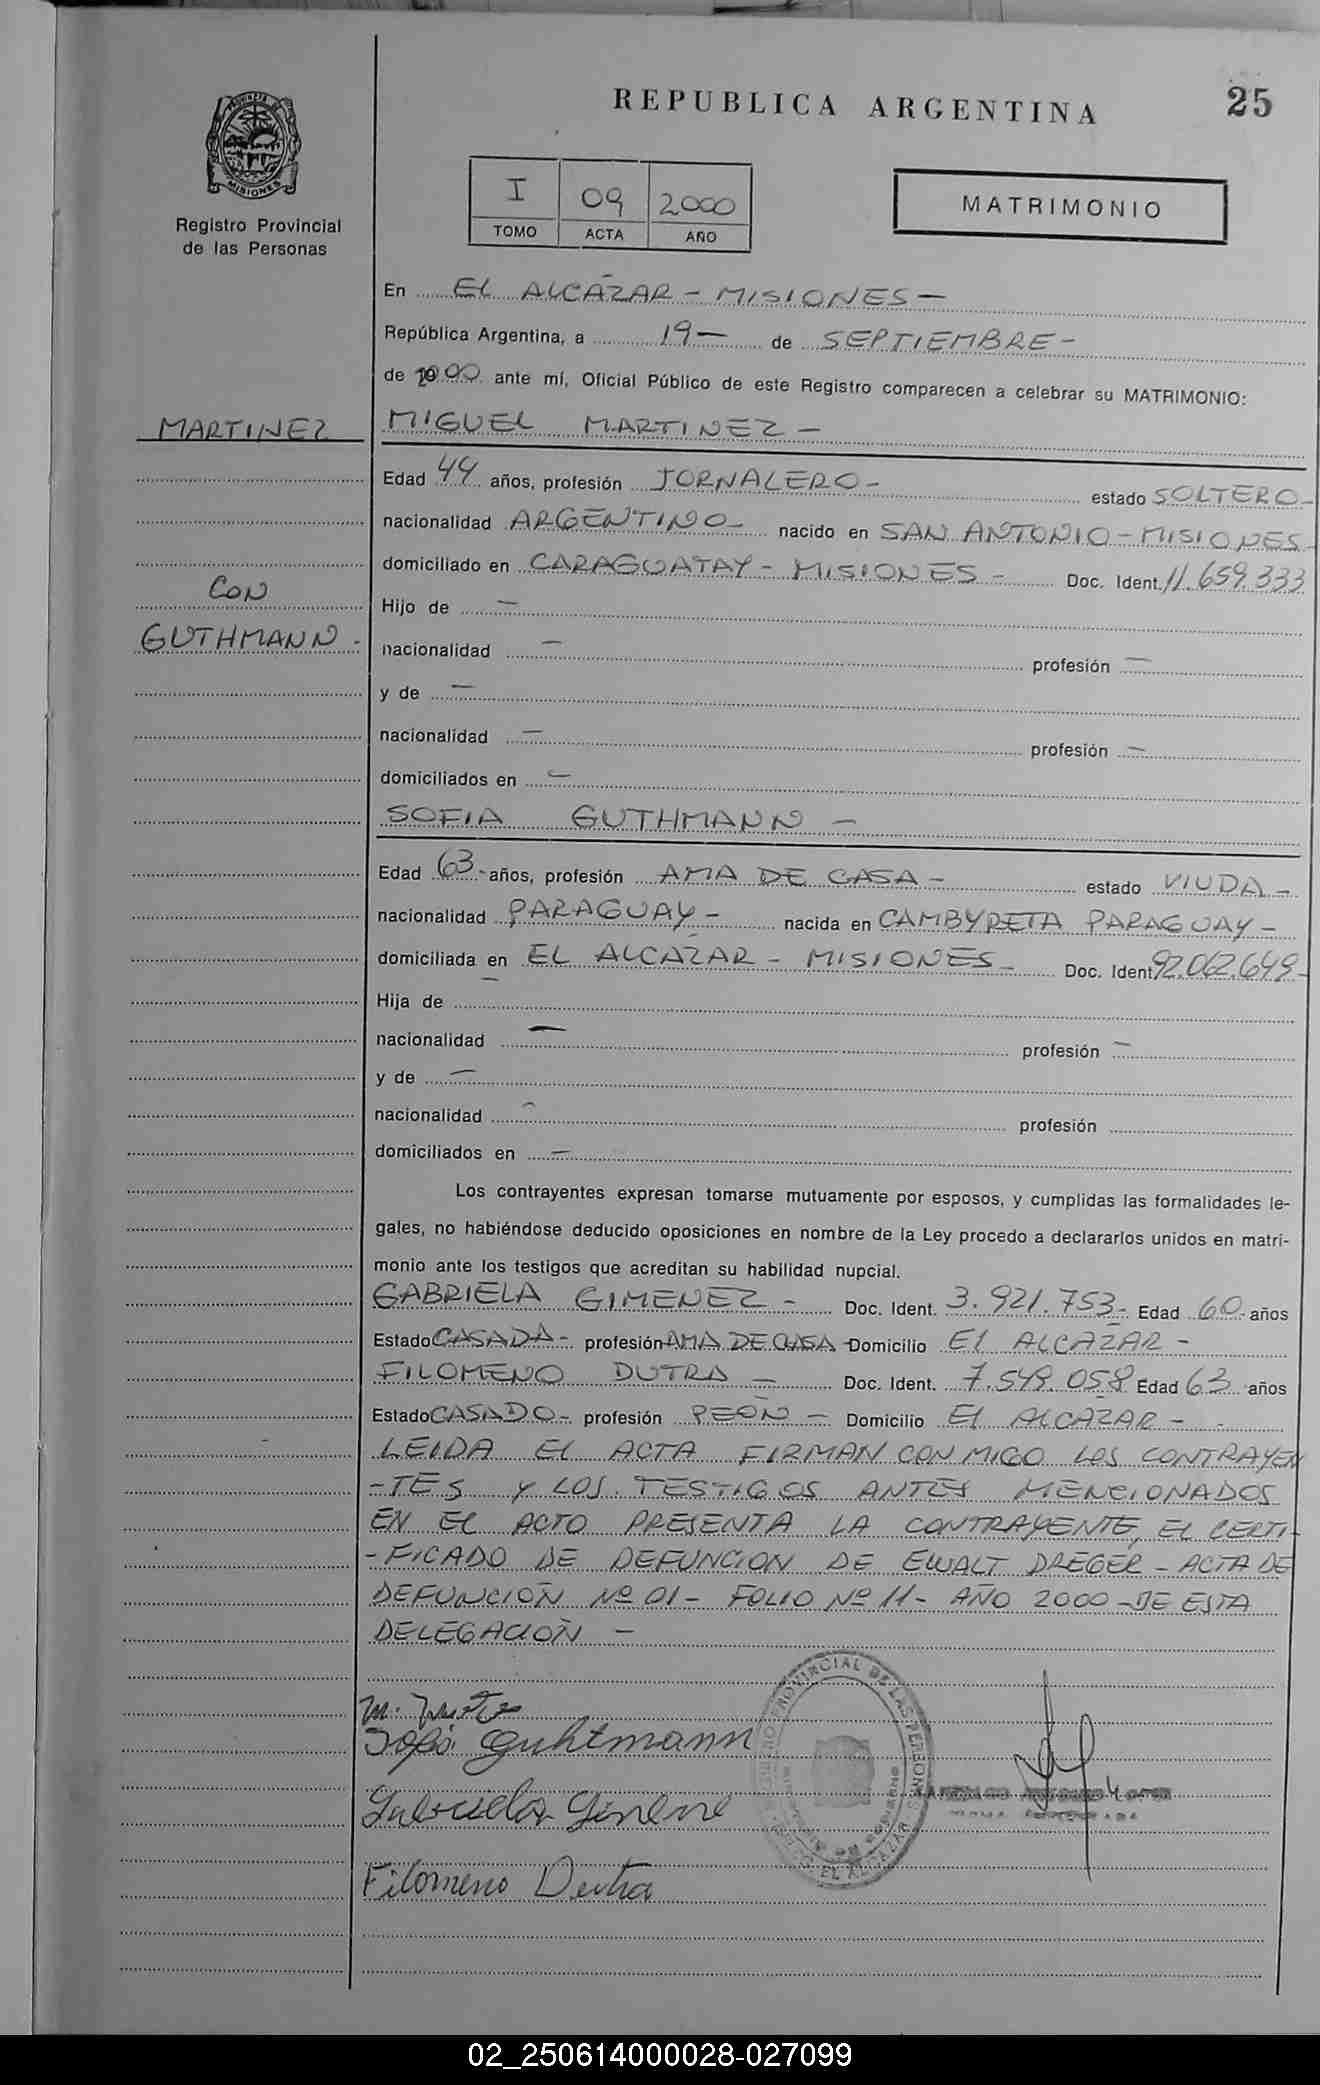 REPUBLICA ARGENTINA
25
PROVINCIA DE
MISIONES
Registro Provincial
de las Personas
I 09 2000
TOMO ACTA AÑO
MATRIMONIO
En EL ALCÁZAR - MISIONES -
República Argentina, a 19 - de SEPTIEMBRE -
de 2000 ante mí, Oficial Público de este Registro comparecen a celebrar su MATRIMONIO:
MARTINEZ
MIGUEL MARTINEZ -
Edad 44 años, profesión JORNALERO - estado SOLTERO -
nacionalidad ARGENTINO - nacido en SAN ANTONIO - MISIONES -
domiciliado en CARAGUATAY - MISIONES - Doc. Ident. 11.659.333
CON
Hijo de -
GUTHMANN -
nacionalidad - profesión -
y de -
nacionalidad - profesión -
domiciliados en -
SOFIA GUTHMANN -
Edad 63 - años, profesión AMA DE CASA - estado VIUDA -
nacionalidad PARAGUAY - nacida en CAMBYRETA PARAGUAY -
domiciliada en EL ALCÁZAR - MISIONES - Doc. Ident. 92.062.649 -
Hija de -
nacionalidad - profesión -
y de -
nacionalidad - profesión
domiciliados en -
Los contrayentes expresan tomarse mutuamente por esposos, y cumplidas las formalidades le-
gales, no habiéndose deducido oposiciones en nombre de la Ley procedo a declararlos unidos en matri-
monio ante los testigos que acreditan su habilidad nupcial.
GABRIELA GIMENEZ - Doc. Ident. 3.921.753 - Edad 60 - años
Estado CASADA - profesión AMA DE CASA - Domicilio El ALCÁZAR -
FILOMENO DUTRA - Doc. Ident. 7.549.058 Edad 63 años
Estado CASADO - profesión PEÓN - Domicilio El ALCÁZAR -
LEIDA EL ACTA FIRMAN CON MIGO LOS CONTRAYEN
-TES Y LOS TESTIGOS ANTES MENCIONADOS
EN EL ACTO PRESENTA LA CONTRAYENTE, EL CERTI-
-FICADO DE DEFUNCION DE EWALT DREGER - ACTA DE
DEFUNCIÓN Nº 01 - FOLIO Nº 11 - AÑO 2000 - DE ESTA
DELEGACIÓN -
Sofia Guhtmann
Gabriela Gimene
Filomeno Dutra
REGISTRO PROVINCIAL DE LAS PERSONAS
EL ALCAZAR
02_250614000028-027099